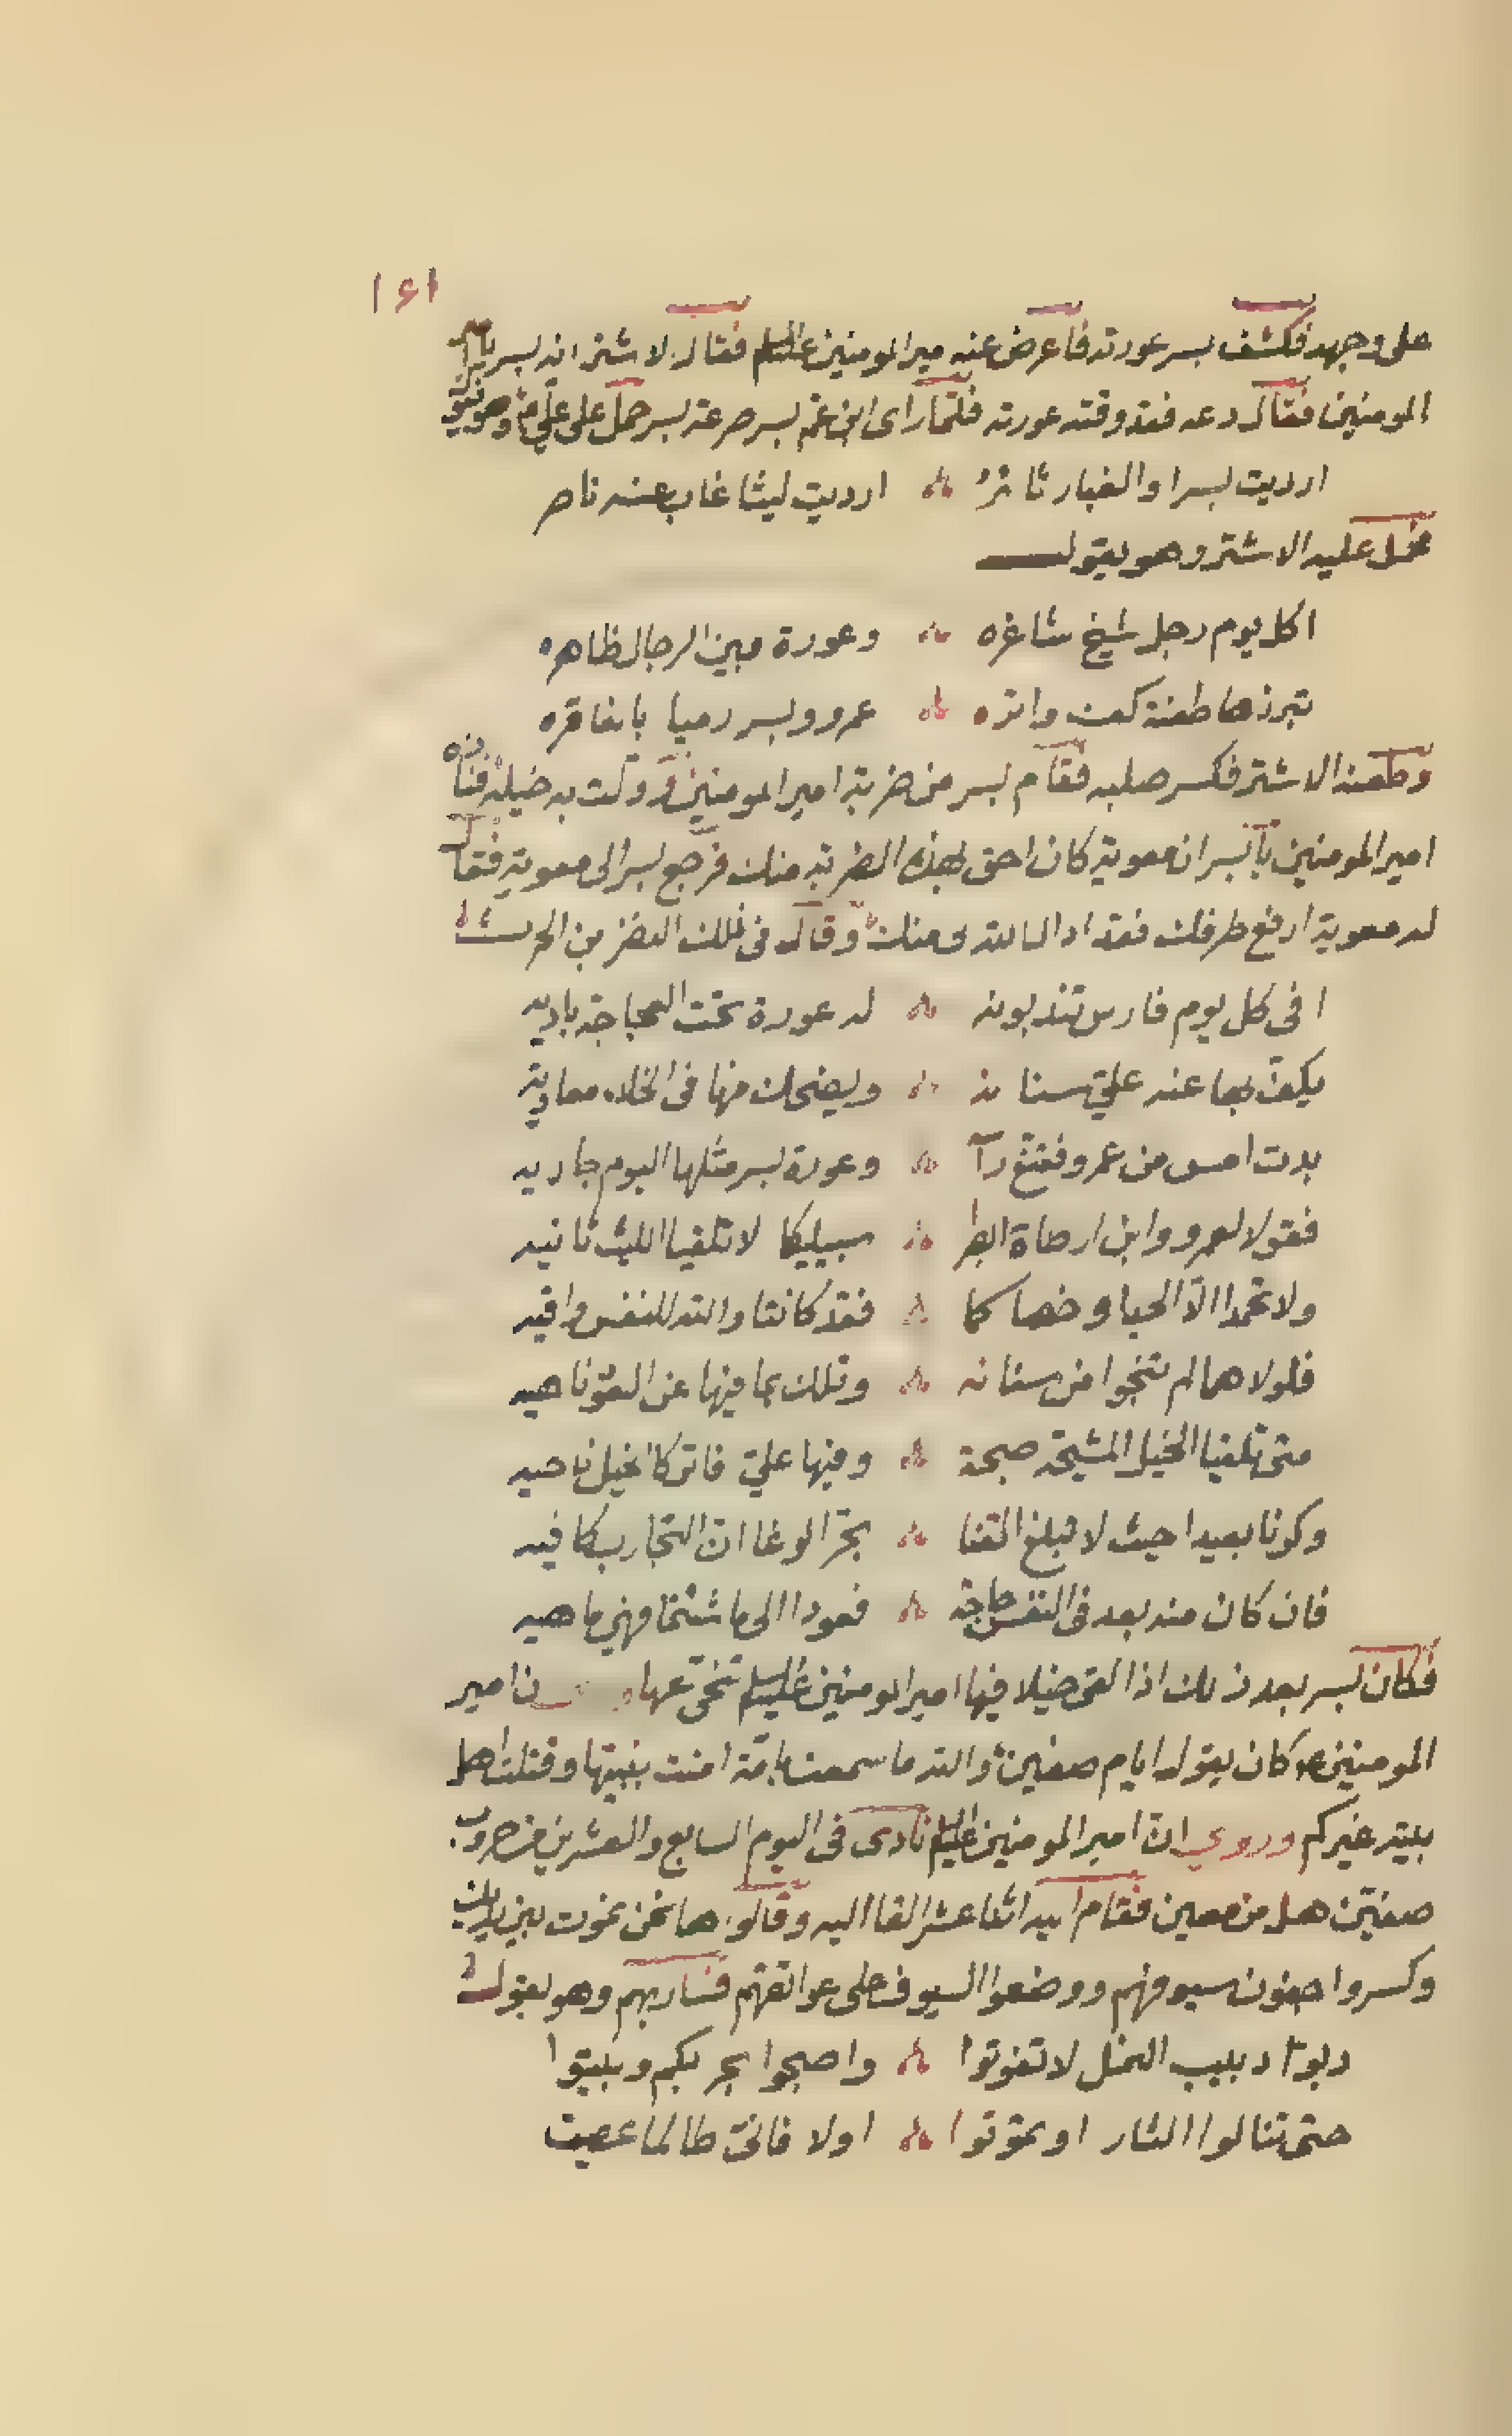 ١٤١
على وجهه فكشف بسر عورته فاعرض عنه مير المومنين عليه السلم فقال لاشتر انه بسر يا امير
المومنين فقال دعه فقد وقته عورته فلما راى ابن عم بسر صرعة بسر حمل على علي ع وهو يقول
ارديت بسرا والغبار ثائره ارديت ليثا غاب عنه ناصر
فحمل عليه الاشتر وهو يقول
اكل يوم رجل شيخ شاغره وعورة مبين الرجال ظاهره
تبرزها طعنة كف واتره عمرو وبسر رميا بالفاقره
وطعنه الاشتر فكسر صلبه فقام بسر من ضربة امير المومنين ع وولت به خيله فناداه
امير المومنين يا بسر ان معوية كان احق بهذه الضربة منك فرجع بسر الى معوية فقال
له معوية ارفع طرفك فقد ادال الله منك وقال فى ذلك النضر بن الحرث
افى كل يوم فارس تندبونه له عورة تحت العجاجة باديه
يكف بها عنه علي سنانه ويضحك منها فى الخلاء معاوية
بدت امس من عمرو فقنع رآ وعورة بسر مثلها اليوم جاديه
فقولا لعمرو وابن ارطاة ابطرا سبيليكما لا تلقيا الليث ثانيه
ولا تحمدا الا الحيا وخصاكما فقد كانتا والله للنفس واقيه
فلولاهما لم تنجوا من سنانه وتلك بما فيها عن العو ناهيه
متى تلقيا الخيل المشيحة صبحة وفيها علي فاتركا الخيل ناحيه
وكونا بعيدا حيث لا تبلغ القنا بحر الوغا ان التجارب كافيه
فان كان منه بعد فى النفس حاجة فعودا الى ما شئتما فهي ما هيه
فكان بسر بعد ذلك اذا لقى خيلا فيها امير المومنين عليه السلم تنحى عنها ن امير
المومنين ع كان يقول ايام صفين والله ما سمعت بامة امنت بنبيها وقتلت اهل
بيته غيركم وروي ان امير المومنين عليه السلم نادى فى اليوم السابع والعشرين من حروب
صفين هل من معين فقام اليه اثنا عشر الفا اليه وقالوا ها نحن نموت بين يديك
وكسروا جفون سيوفهم ووضعوا السيوف على عواتقهم فسار بهم وهو يقول
دبوا دبيب النمل لا تفوتوا واصبحوا بحربكم وبيتوا
حتى تنالوا الثار او تموتوا اولا فانى طالما عصيت